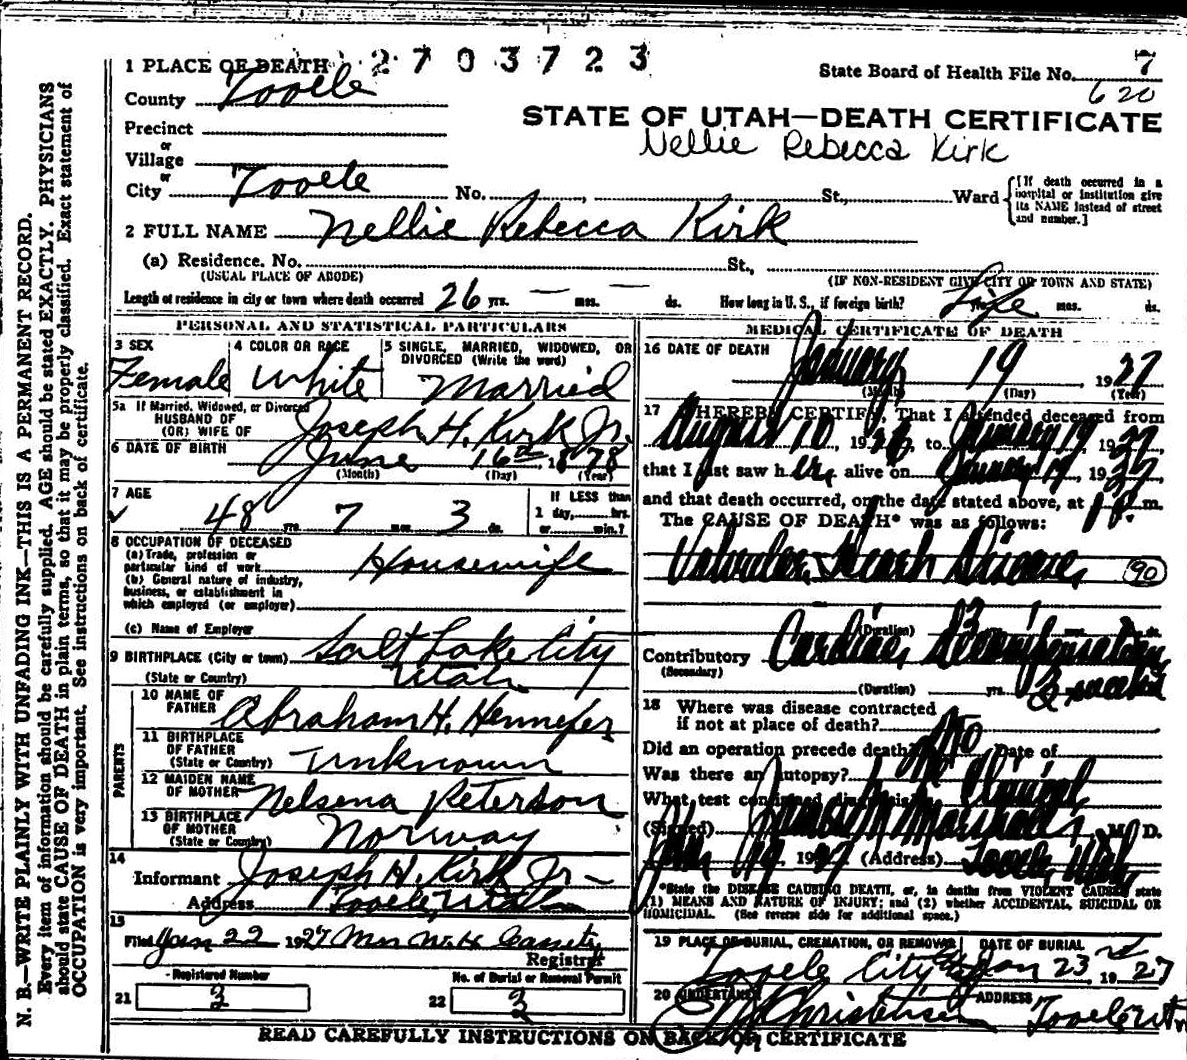 N. B.—WRITE PLAINLY WITH UNFADING INK—THIS IS A PERMANENT RECORD.
Every item of information should be carefully supplied. AGE should be stated EXACTLY. PHYSICIANS
should state CAUSE OF DEATH in plain terms, so that it may be properly classified. Exact statement of
OCCUPATION is very important. See instructions on back of certificate.
1 PLACE OF DEATH 2703723
State Board of Health File No. 7
620
County Tooele
STATE OF UTAH—DEATH CERTIFICATE
Precinct
or
Nellie Rebecca Kirk
Village
or
City Tooele No. , St., Ward
[If death occurred in a
hospital or institution give
its NAME instead of street
and number.]
2 FULL NAME Nellie Rebecca Kirk
(a) Residence. No. St.,
(USUAL PLACE OF ABODE) (IF NON-RESIDENT GIVE CITY OR TOWN AND STATE)
Length of residence in city or town where death occurred 26 yrs. — mos. — ds. How long in U. S., if foreign birth? Life yrs. mos. ds.
PERSONAL AND STATISTICAL PARTICULARS
3 SEX
Female
4 COLOR OR RACE
White
5 SINGLE, MARRIED, WIDOWED, OR
DIVORCED (Write the word)
Married
5a If Married, Widowed, or Divorced
HUSBAND OF
(OR) WIFE OF Joseph H. Kirk Jr.
6 DATE OF BIRTH June 16th, 1878
(Month) (Day) (Year)
7 AGE
48 yrs. 7 mos. 3 ds.
If LESS than
1 day, hrs.
or min.?
8 OCCUPATION OF DECEASED
(a) Trade, profession or
particular kind of work Housewife
(b) General nature of industry,
business, or establishment in
which employed (or employer)
(c) Name of Employer
9 BIRTHPLACE (City or town) Salt Lake City
(State or Country) Utah
PARENTS
10 NAME OF
FATHER Abraham H. Hennefer
11 BIRTHPLACE
OF FATHER
(State or Country) Unknown
12 MAIDEN NAME
OF MOTHER Nelsena Peterson
13 BIRTHPLACE
OF MOTHER
(State or Country) Norway
14
Informant Joseph H. Kirk Jr—
Address Tooele, Utah
15
Filed Jan 22 1927 Mrs W. H. Cassity
Registrar
Registered Number
21 3
No. of Burial or Removal Permit
22 3
MEDICAL CERTIFICATE OF DEATH
16 DATE OF DEATH
January 19, 1927
(Month) (Day) (Year)
17 I HEREBY CERTIFY, That I attended deceased from
August 10, 1926, to January 19, 1927
that I last saw her alive on January 19, 1927
and that death occurred, on the date stated above, at m.
The CAUSE OF DEATH* was as follows:
Valvular Heart Disease, 90
(Duration) yrs. mos. ds.
Contributory Cardiac Decompensation
(Secondary)
(Duration) yrs.
18 Where was disease contracted
if not at place of death?
Did an operation precede death? No Date of
Was there an autopsy? No
What test confirmed diagnosis? Clinical
(Signed) M. D.
Jan 19, 1927 (Address) Tooele, Utah
*State the DISEASE CAUSING DEATH, or, in deaths from VIOLENT CAUSES state
(1) MEANS AND NATURE OF INJURY; and (2) whether ACCIDENTAL, SUICIDAL OR
HOMICIDAL. (See reverse side for additional space.)
19 PLACE OF BURIAL, CREMATION, OR REMOVAL DATE OF BURIAL
Tooele City Jan 23rd 1927
20 UNDERTAKER ADDRESS
Christensen Tooele Ut
READ CAREFULLY INSTRUCTIONS ON BACK OF CERTIFICATE